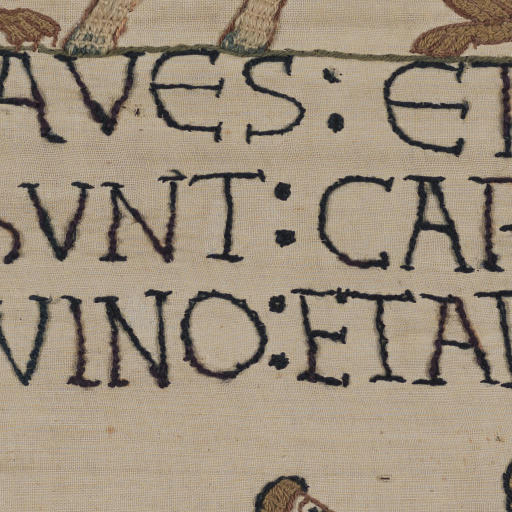 AVES : ET
SVNT : CAR
VINO : ET AR